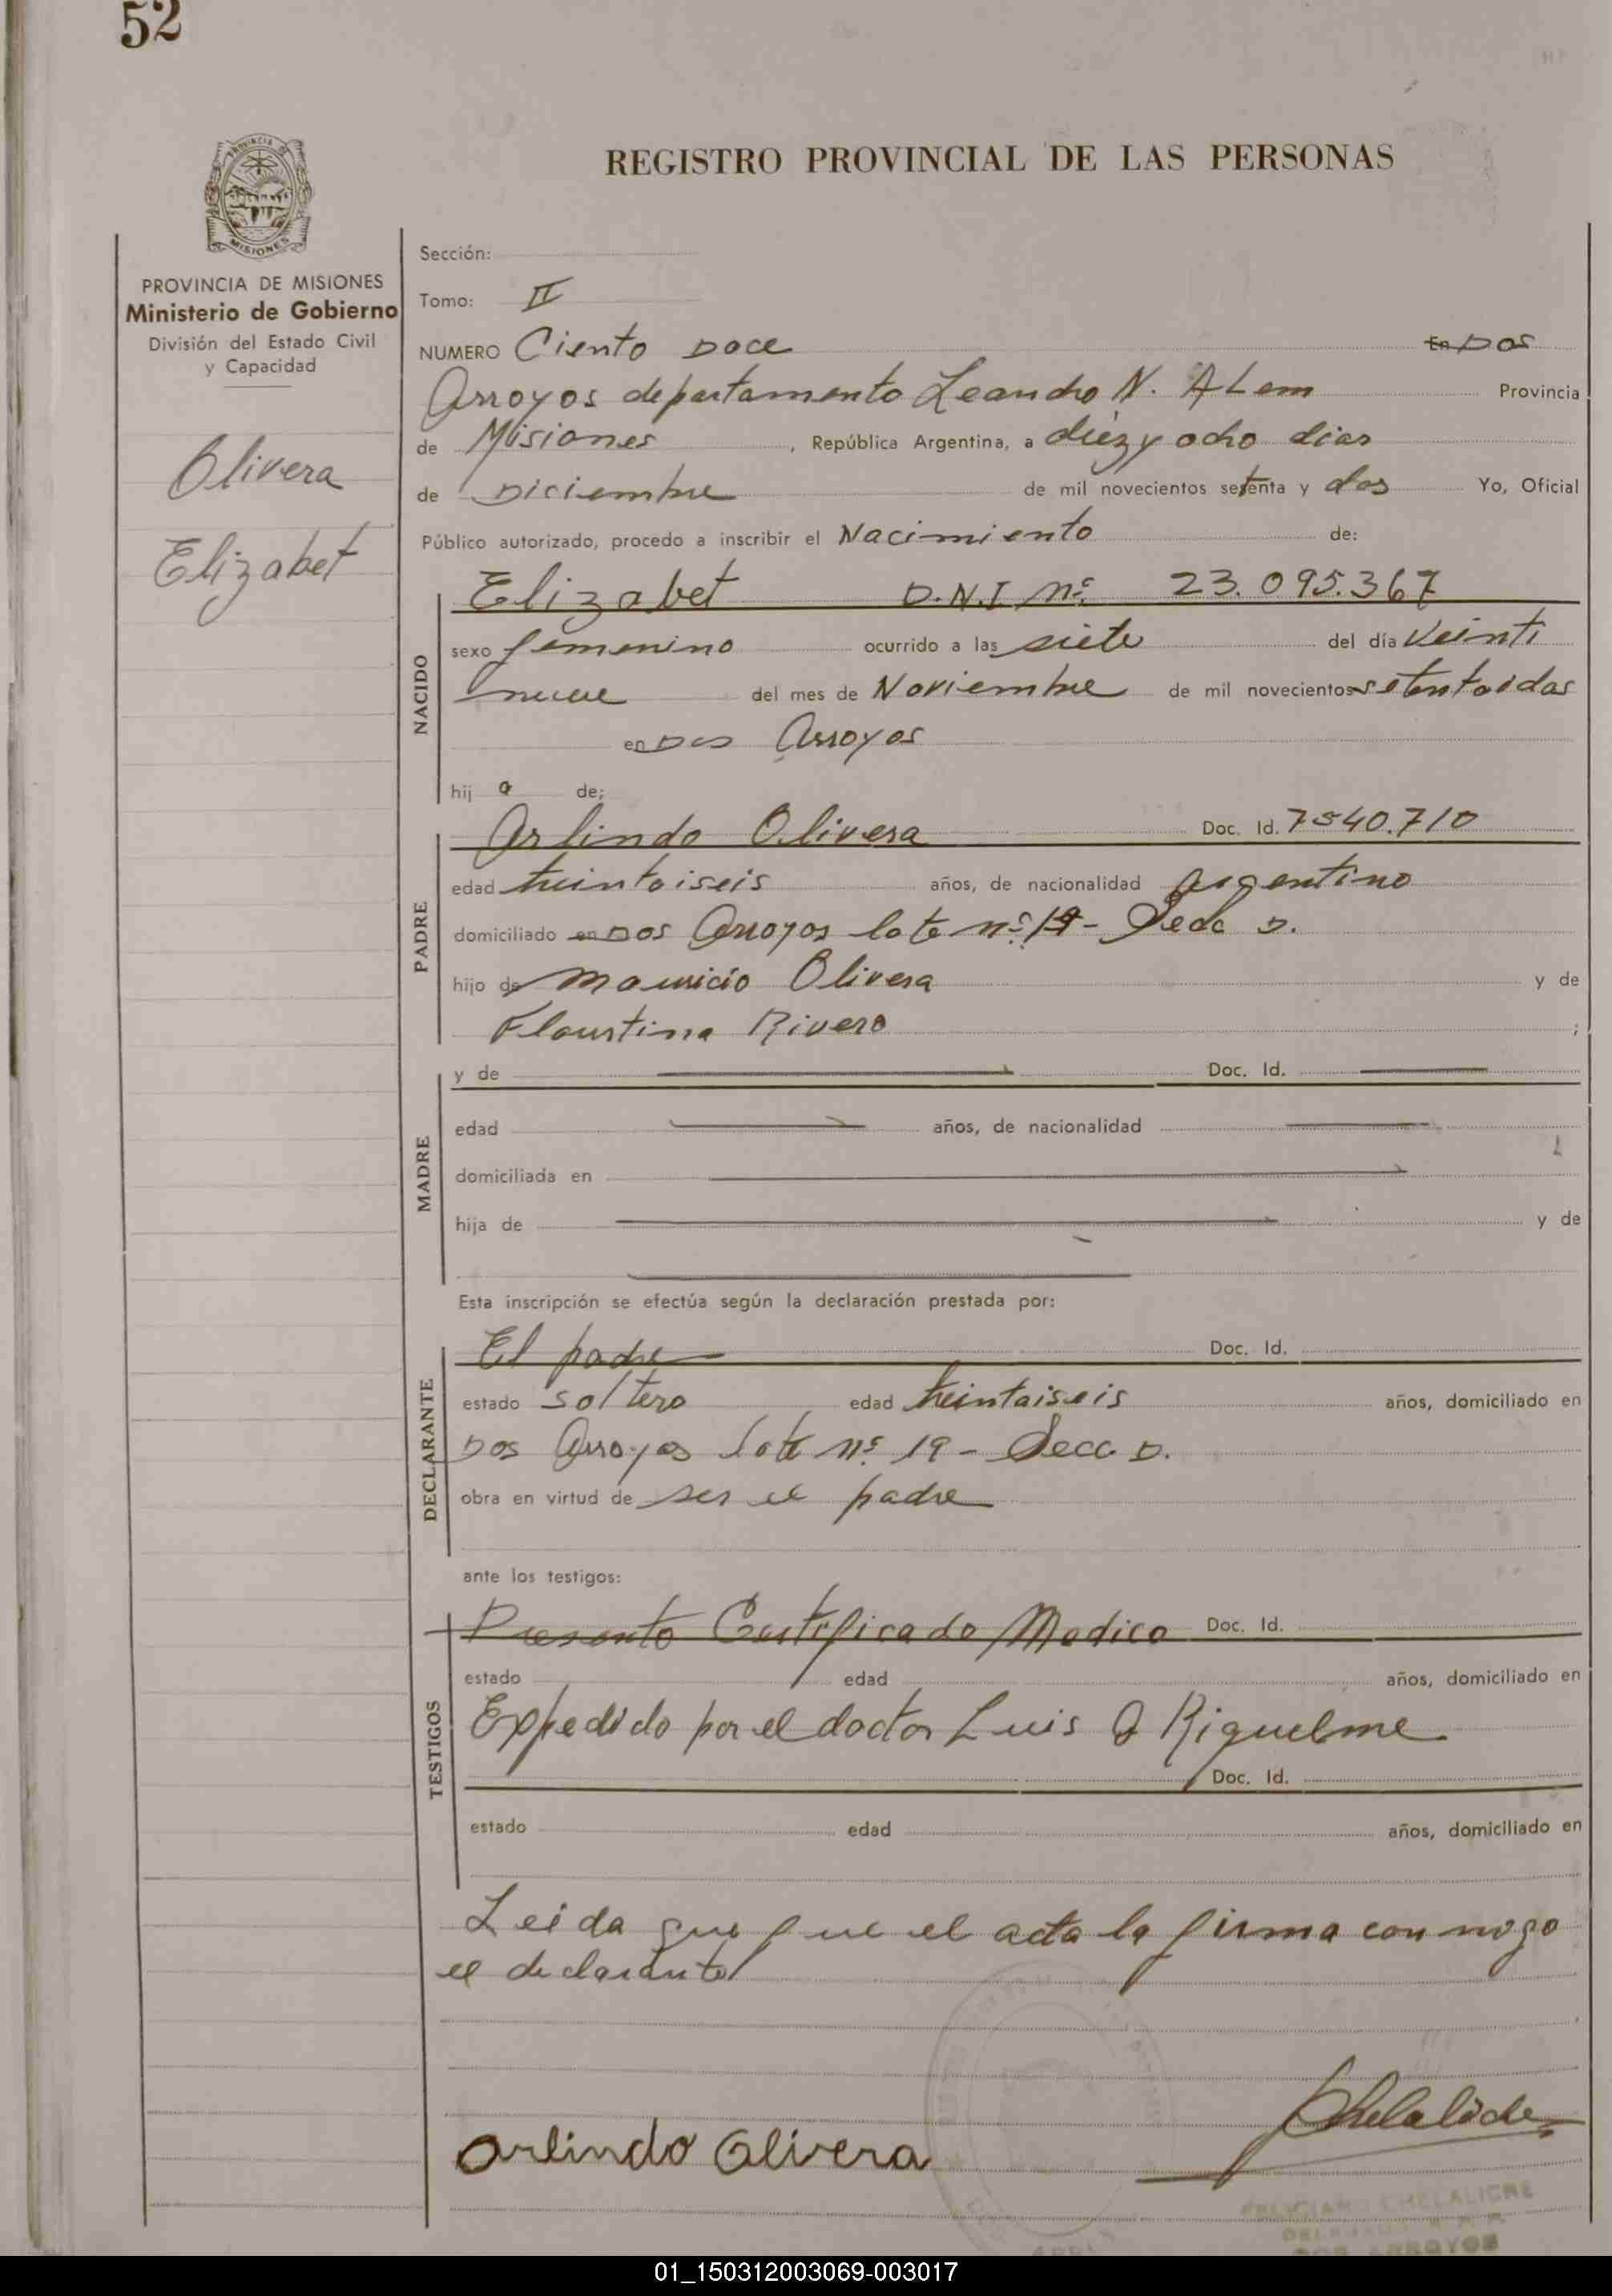 52
REGISTRO PROVINCIAL DE LAS PERSONAS
PROVINCIA DE
MISIONES
PROVINCIA DE MISIONES
Ministerio de Gobierno
División del Estado Civil
y Capacidad
Olivera
Elizabet
Sección:
Tomo: II
NUMERO Ciento Doce En Dos
Arroyos departamento Leandro N. ALem Provincia
de Misiones, República Argentina, a diez y ocho dias
de Diciembre de mil novecientos setenta y dos Yo, Oficial
Público autorizado, procedo a inscribir el Nacimiento de:
NACIDO
Elizabet D.N.I nº 23.095.367
sexo femenino ocurrido a las siete del día Veinti
nueve del mes de Noviembre de mil novecientos setentaidos
en Dos Arroyos
hij a de;
PADRE
Arlindo Olivera Doc. Id. 7540.710
edad treintaiseis años, de nacionalidad argentino
domiciliado en Dos Arroyos lote nº 19 - Secc D.
hijo de Mauricio Olivera y de
Flaustina Rivero ;
MADRE
y de Doc. Id.
edad años, de nacionalidad
domiciliada en
hija de y de
Esta inscripción se efectúa según la declaración prestada por:
DECLARANTE
El padre Doc. Id.
estado soltero edad treintaiseis años, domiciliado en
Dos Arroyos lote nº 19 - Secc D.
obra en virtud de ser el padre
ante los testigos:
TESTIGOS
Presento Certificado Medico Doc. Id.
estado edad años, domiciliado en
Expedido por el doctor Luis Q Riquelme
Doc. Id.
estado edad años, domiciliado en
Leida que fue el acta la firma con migo
el declarante
Arlindo Olivera
Chelaliche
FELICIANO CHELALICHE
DOS ARROYOS
01_150312003069-003017